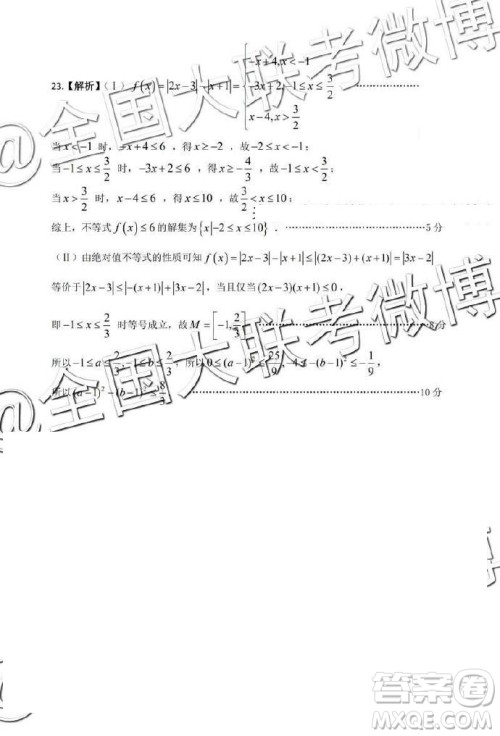 -x+4,x<-1
23.【解析】（Ⅰ）f(x)=|2x-3|-|x+1|={-3x+2,-1≤x≤3/2
x-4,x>3/2
当x<-1时，-x+4≤6，得x≥-2，故-2≤x<-1；
当-1≤x≤3/2时，-3x+2≤6，得x≥-4/3，故-1≤x≤3/2；
当x>3/2时，x-4≤6，得x≤10，故3/2<x≤10；
综上，不等式f(x)≤6的解集为{x|-2≤x≤10}．……5分
（Ⅱ）由绝对值不等式的性质可知f(x)=|2x-3|-|x+1|≤|(2x-3)+(x+1)|=|3x-2|
等价于|2x-3|≤|-(x+1)|+|3x-2|，当且仅当(2x-3)(x+1)≤0，
即-1≤x≤2/3时等号成立，故M=[-1,2/3]……8分
所以-1≤a≤2/3,-1≤b≤2/3，所以0≤(a-1)²≤25/9,-4≤-(b-1)²≤-1/9，
所以(a-1)²-(b-1)²≤8/3……10分
@全国大联考微博
@全国大联考微博
答案圈
MXQE.COM